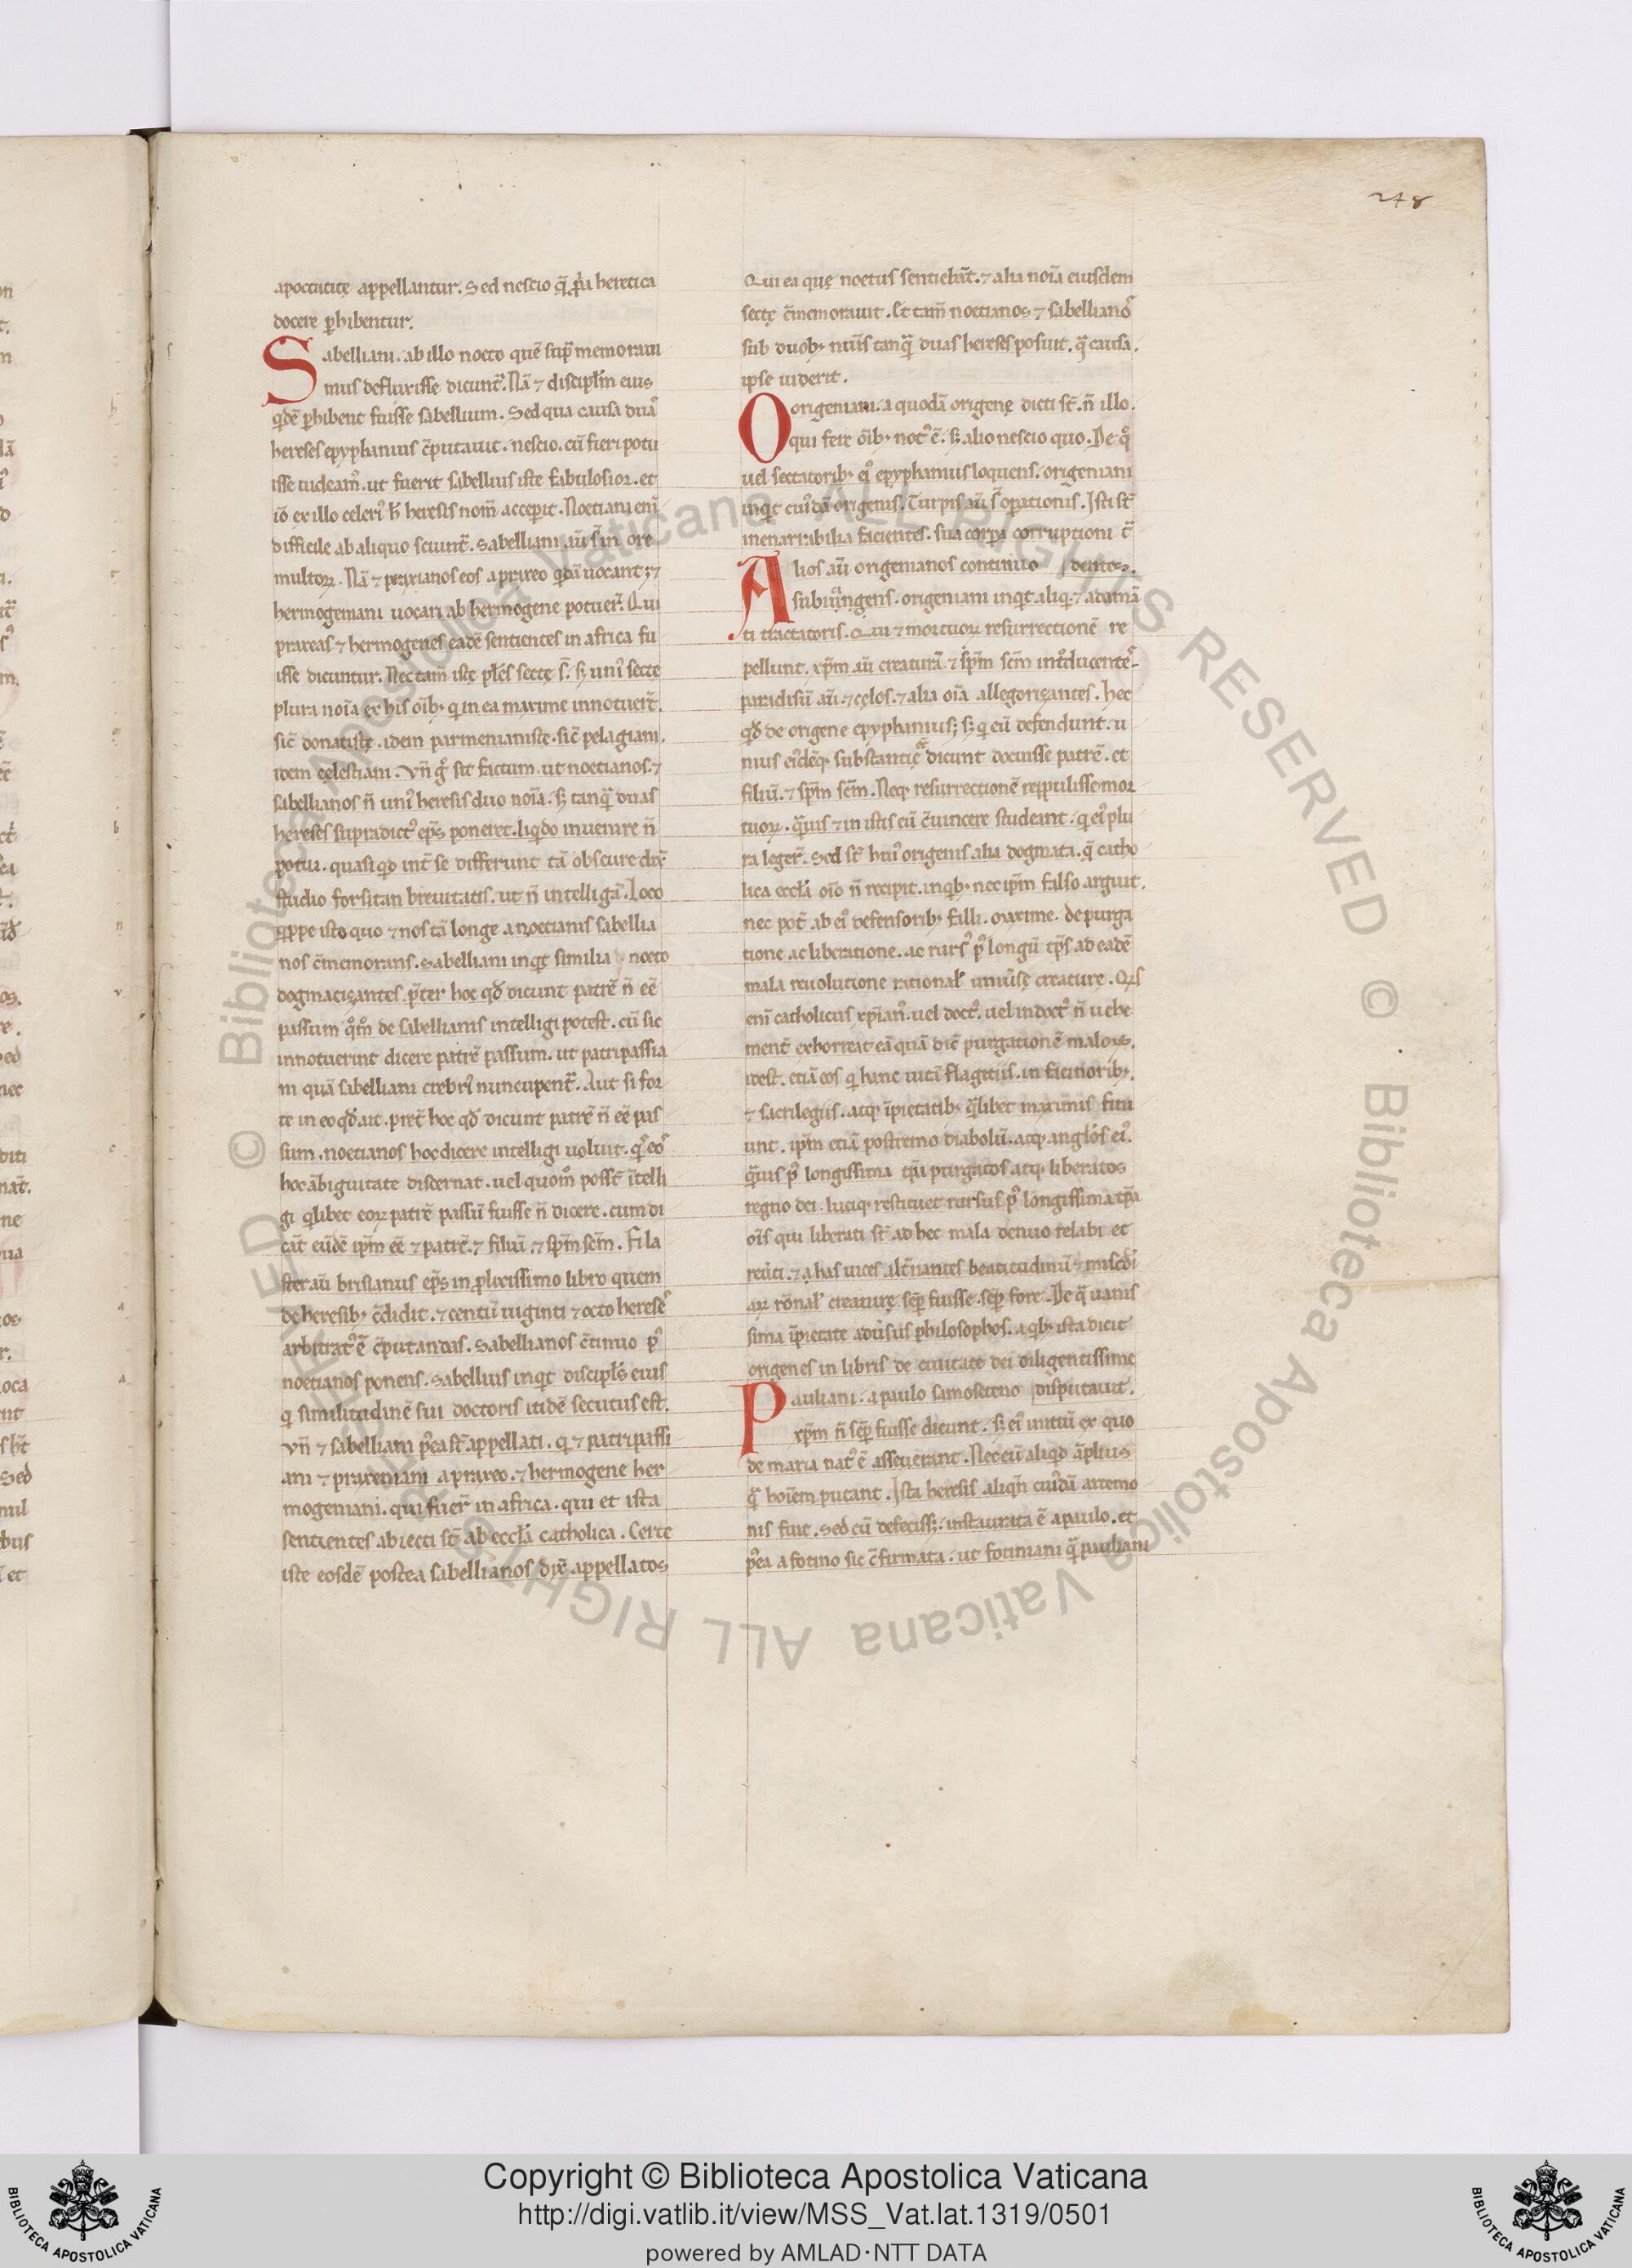 248
apoctatitę appellantur. Sed nescio q̄ ꝓpͥa heretica
docere ꝑhibentur.
Sabelliani. ab illo noeto quē sup̄ memoraui
mus defluxisse dicunt᷑. Nā ⁊ discipl̄m eius
qͥdē ꝑhibent fuisse sabellium. Sed qua causa duaˢ
hereses epyphanius ꝯ̄putauit. nescio. cū fieri potu
isse uideamꝰ. ut fuerit sabellius iste famosior. et
iō ex illo celebriꝰ h̄ heresis nom̄ acceperit. Noetiani enī
difficile ab aliquo sciunt᷑. Sabelliani aū s̄ in ore
multoꝝ. Nā ⁊ praxianos eos a praxeo qͥdā uocant. ⁊
hermogeniani uocari ab hermogene potuer̄. Qui
praxeas ⁊ hermogenes eadē sentientes in africa fu
isse dicuntur. Nec tam̄ istę pl̄es sectę s̄. s; uniꝰ sectę
plura noīa ex his oīb; qͥ in ea maxime innotuer̄t.
sic̄ donatistę. idem parmenianistę. sic̄ pelagiani.
idem cęlestiani. Vn̄ gͦ sit factum. ut noetianos. ⁊
sabellianos n̄ uniꝰ heresis duo noīa. s; tanq̄ duas
hereses supradictꝰ ep̄s poneret. liqͥdo inuenire n̄
potui. quia si qͥd int̄ se differunt tā obscure dix̄
studio forsitan breuitatis. ut n̄ intelligā. Loco
qͥppe isto quo ⁊ nos tā longe a noetianis sabellia
nos ꝯ̄memorans. Sabelliani inqͥt similia noeto
dogmatizantes p̄ter hoc qd̄ dicunt patrē n̄ eē
passum qͦmͦ de sabellianis intelligi potest. cū sic
innotuerint dicere patrē passum. ut patripassia
ni quā sabelliani crebriꝰ nuncupent᷑. Aut si for
te in eo qd̄ ait. p̄ter hoc qd̄ dicunt patrē n̄ eē pas
sum. noetianos hoc dicere intelligi uoluit. qͥs eoˢ
hoc ābiguitate discernat. uel quomͦ poss̄t ītelli
gi qͥlibet eoꝝ patrē passū fuisse n̄ dicere. cum di
cāt eūdē ip̄m eē ⁊ patrē. ⁊ filiū. ⁊ sp̄m sc̄m. Fila
ster aū brisianus ep̄s in ꝓlixissimo libro quem
de heresib; ꝯ̄didit. ⁊ centū uiginti ⁊ octo hereseˢ
arbitratꝰ ē ꝯ̄putandas. Sabellianos ꝯ̄tinuo pꝰ
noetianos ponens. Sabellius inqͥt discipl̄s eius
qͥ similitudinē sui doctoris itidē secutus est.
Vn̄ ⁊ sabelliani p̄ea st̄ appellati. qͥ ⁊ patripassi
ani ⁊ praxeniani a praxeo. ⁊ hermogene her
mogeniani. qui fuer̄ in africa. qui et ista
sentientes abiecti st̄ ab eccl̄a catholica. Certe
iste eosdē postea sabellianos dix̄ appellatos
Qui ea quę noetus sentiebāt. ⁊ alia noīa eiusdem
sectę ꝯ̄memorauit. Et tam̄ noetianos ⁊ sabellianoˢ
sub duob; nūis tanq̄ duas hereses posuit. q̄ causa.
ipse uiderit.
Origeniani. a quodā origenę dicti st̄. n̄ illo.
qui fere oīb; notꝰ ē. s; alio nescio quo. De qͦ
uel sectatorib; eiꝰ epyphanius loquens. origeniani
inqͥt cuiꝰdā origenis. Turpis aū s̄ oꝑationis. Isti st̄
inenarrabilia facientes. sua corpa corruptioni t̄
Alios aū origenianos continuo dentes.
subiungens. origeniani inqͥt aliqͥ. ⁊ adamā
ti tractatoris. Qui ⁊ mortuoꝝ resurrectionē re
pellunt. xp̄m. aū creaturā ⁊ sp̄m sc̄m introducenteˢ
paradisū aū. ⁊ cęlos. ⁊ alia oīa allegorizantes. hec
qd̄ de origene epyphanius; s; qͥ eū defendunt. u
nius eiꝰdēq; substantię eē dicunt docuisse patrē. et
filiū. ⁊ sp̄m sc̄m. Neq; resurrectionē reppulisse mor
tuoꝝ. q̄uis ⁊ in istis eū ꝯ̄uincere studeant. qͥ eiꝰ plu
ra leger̄. Sed st̄ huiꝰ origenis alia dogmata. q̄ catho
lica eccl̄a oīo n̄ recipit. in qͥb; nec ip̄m falso arguit.
nec pot̄ ab eiꝰ defensorib; falli. maxime. de purga
tione. ac liberatione. ac rursꝰ pꝰ longū tp̄s ad eadē
mala reuolutione rational̄ uniūsę creaturę. Qͥs
enī catholicus xp̄ianꝰ. uel doctꝰ. uel indoctꝰ n̄ uehe
ment̄ exhorreat eā quā dic̄ purgationē maloꝝ.
idest. etiā eos qͥ hanc uitā flagitiis. in facinorib;.
⁊ sacrilegiis. atq; īpietatib; qͥlibet maximis fini
unt. ip̄m etiā postremo diabolū. atq; angl̄os eiꝰ.
q̄uis pꝰ longissima tp̄a purgatos atq; liberatos
regno dei. luciq; restituet rursus pꝰ longissima tp̄a
oīs qui liberati st̄ ad hec mala denuo relabi et
reūti. ⁊ a has uices alt̄nantes beatitudinū ⁊ miseͥ
aꝝ rōnal̄ creaturę. semꝑ fuisse. semꝑ fore. De q̄ uanis
sima īpietate aduersus philosophos. a qͥb; ista dicit
origenes in libris de ciuitate dei diligentissime
Pauliani. a paulo samoseteno disputauit.
xp̄m n̄ semꝑ fuisse dicunt. s; eiꝰ initiū ex quo
de maria natꝰ ē asseuerant. Nec eū aliqͥd āplius
q̄ hoīem putant. Ista heresis aliqn̄ cuiꝰdā artemo
nis fuit. Sed cū defeciss;. instaurata ē a paulo. et
p̄ea a fotino sic ꝯ̄firmata. ut fotiniani q̄ pauliani
© Biblioteca Apostolica Vaticana ALL RIGHTS RESERVED © Biblioteca Apostolica Vaticana ALL RIGHTS RESERVED
Copyright © Biblioteca Apostolica Vaticana
http://digi.vatlib.it/view/MSS_Vat.lat.1319/0501
powered by AMLAD·NTT DATA
BIBLIOTECA APOSTOLICA VATICANA
BIBLIOTECA APOSTOLICA VATICANA